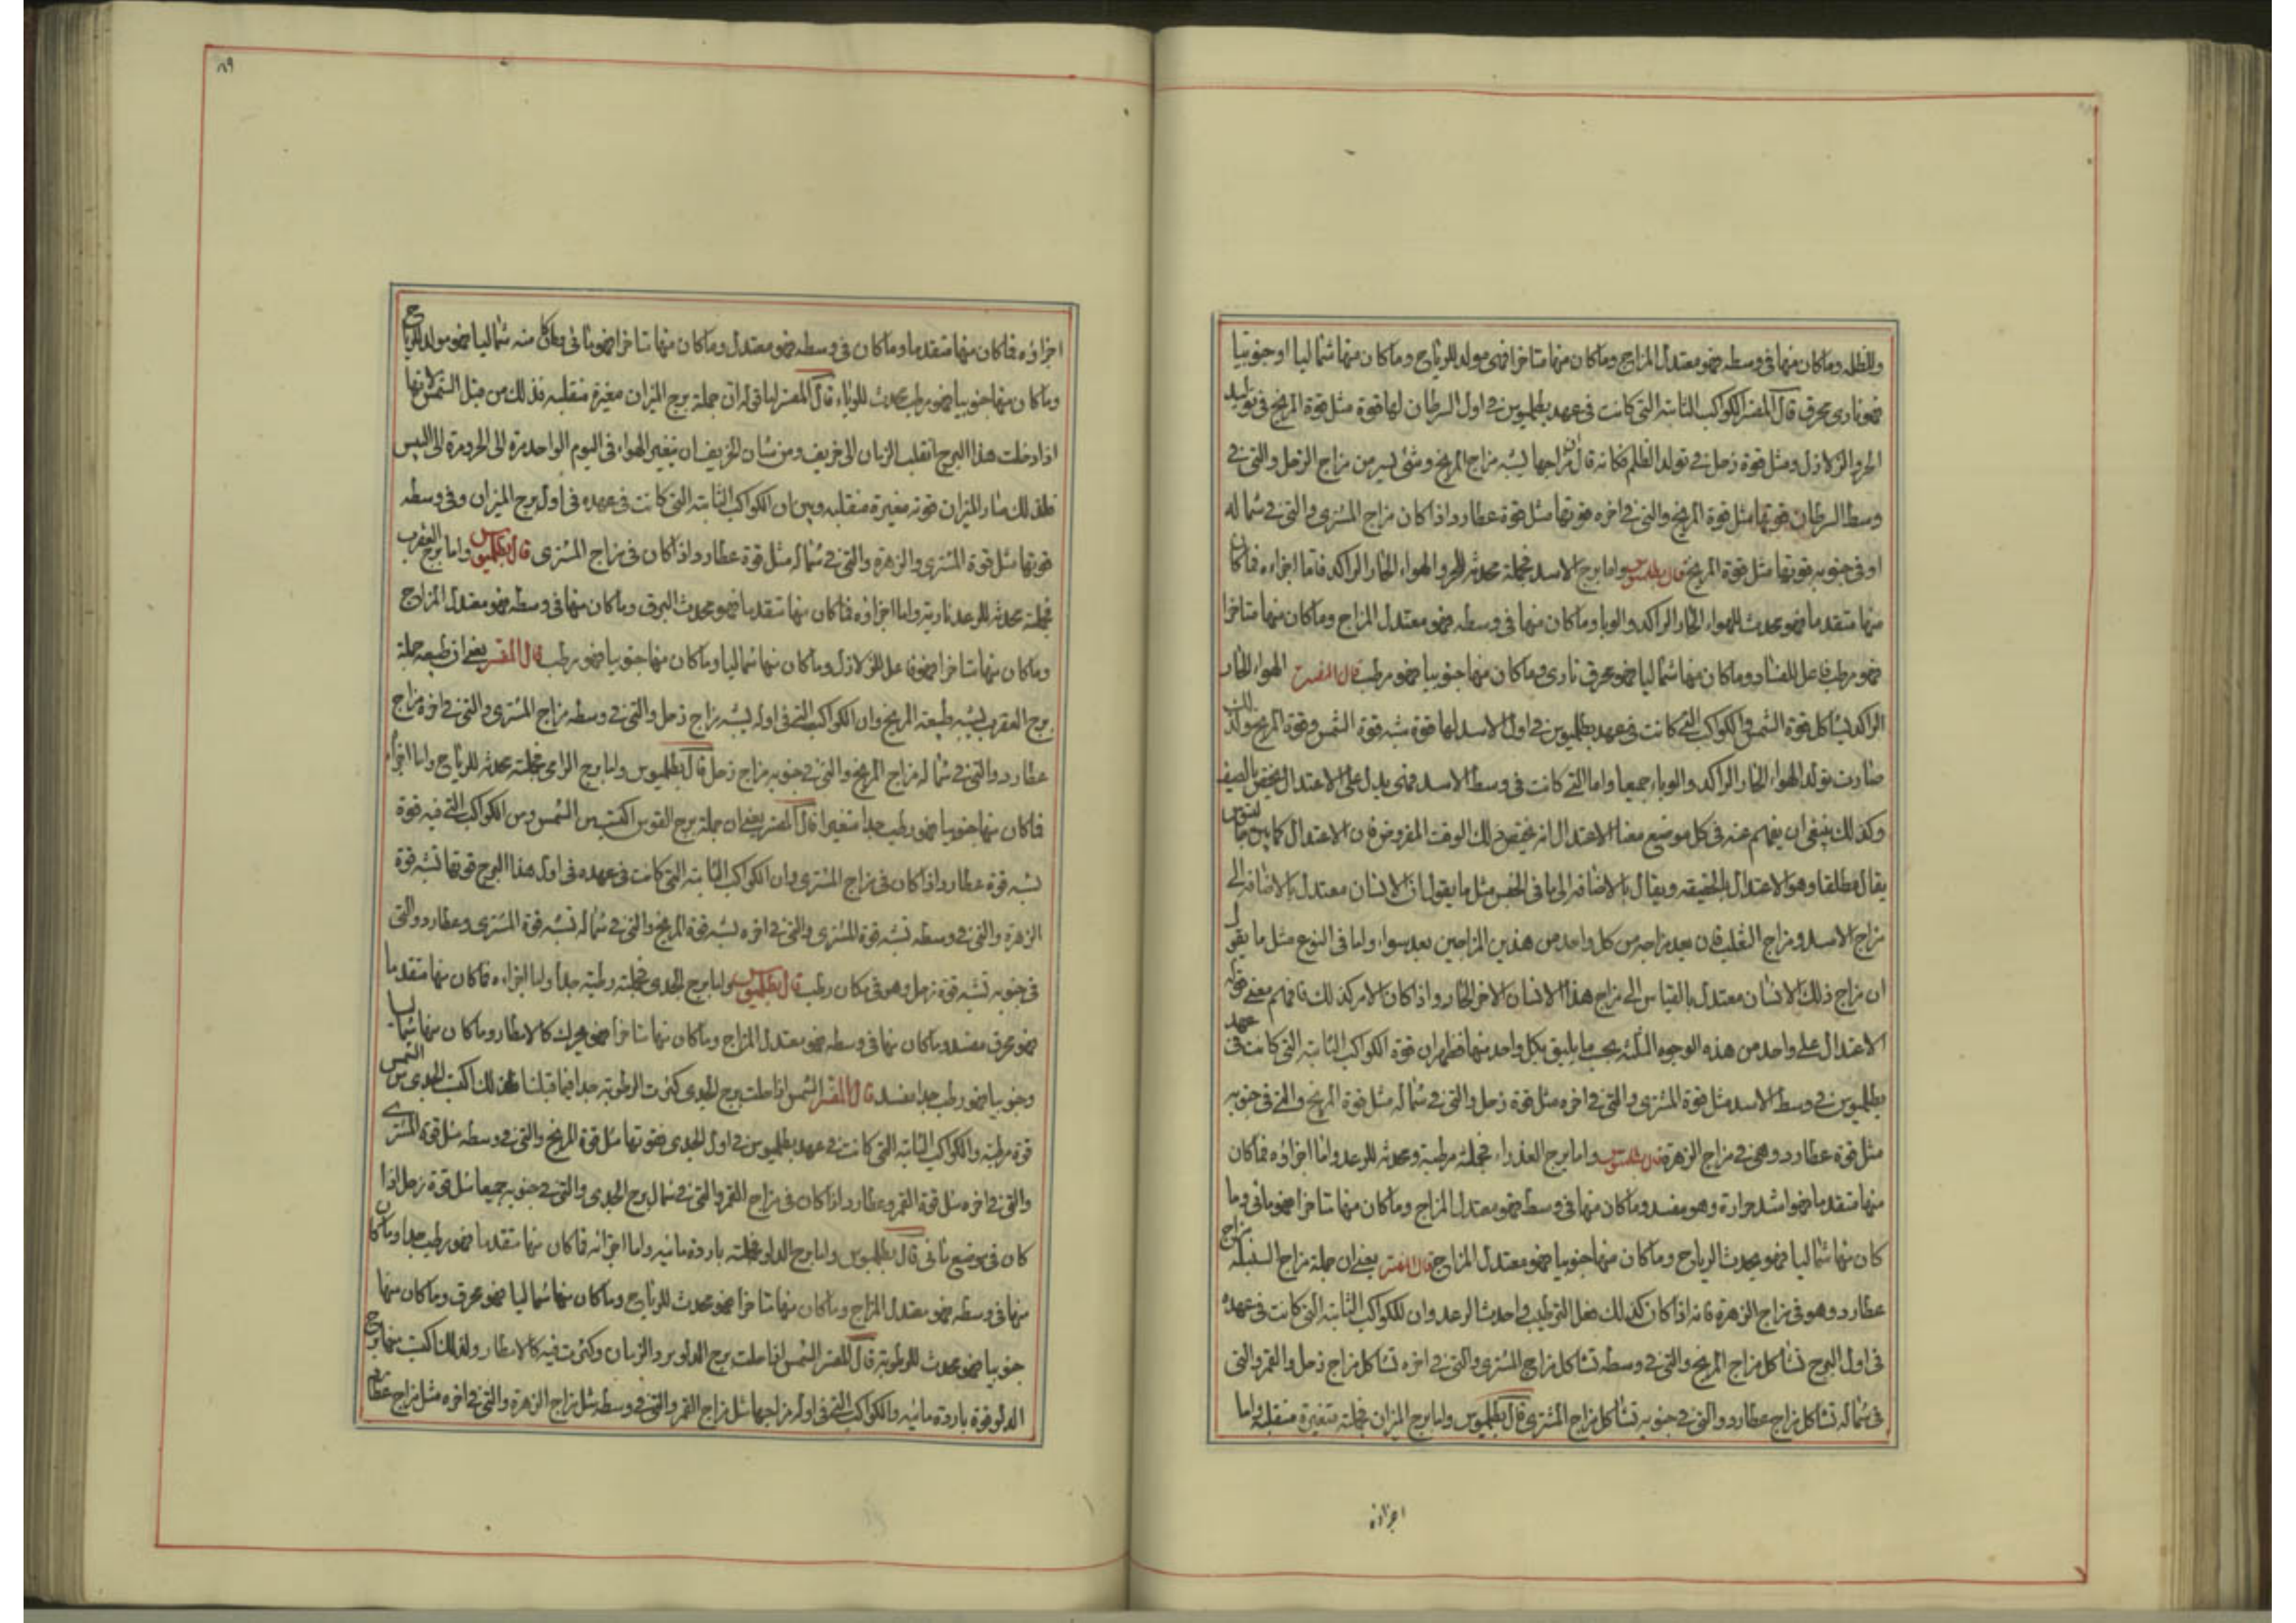 وللظله وماكان منها فى وسطه فهو معتدل المزاج وماكان منها متاخرا فهى مولد للرياح وماكان منها شماليا اوجنوبيا
فهو نارى محرق قال المفسر الكواكب الثابته التى كانت فى عهد بطلميوس فى اول السرطان لها قوة مثل قوة المريخ فى توليد
الحر والزلازل ومثل قوة زحل فى تولد الظلم فكانه قال ان مزاجها يشبه مزاج المريخ وشئ يسير من مزاج الزحل والتى فى
وسط السرطان قوتها مثل قوة المريخ والتى فى اخره قوتها مثل قوة عطارد واذا كان مزاج المشترى والتى فى شماله
او فى جنوبه قوتها مثل قوة المريخ قال بطلميوس واما برج الاسد فجملته محدثه للحر والهواء الحار الراكد فاما اجزاءه فاكان
منها متقدما فهو محدث للهواء الحار الراكد والوبا وماكان منها فى وسطه فهو معتدل المزاج وماكان منها متاخرا
فهو مرطب فاعل للفساد وماكان منها شماليا فهو محرق نارى وماكان منها جنوبيا فهو مرطب قال المفسر الهواء الحار
الراكد يشاكل قوة الشمس والكواكب التى كانت فى عهد بطلميوس فى اول الاسد لها قوة شبه قوة الشمس وقوة المريخ ولذلك
صارت تولد الهواء الحار الراكد والوباء جميعا واما التى كانت فى وسط الاسد فهى يدل على الاعتدال يختص بالصيف
وكذلك ينبغى ان يفهم عنه فى كل موضع معنا الاعتدال انه يختص ذلك الوقت المفروض فان الاعتدال كما بين جالينوس
يقال مطلقا وهو الاعتدال بالحقيقه ويقال بالاضافه الى ما فى الجنس مثل ما يقول ان الانسان معتدل بالاضافه الى
مزاج الاسد ومزاج الثعلب فان بعد مزاجه من كل واحد من هذين المزاجين بعد سواء واما فى النوع مثل ما يقول
ان مزاج ذلك الانسان معتدل بالقياس الى مزاج هذا الانسان الاخر الحار واذا كان الامر كذلك فافهم معنى قوله
الاعتدال على واحد من هذه الوجوه الثلثه بحسب ما يليق بكل واحد منها فظهر ان قوة الكواكب الثابته التى كانت فى عهد
بطلميوس فى وسط الاسد مثل قوة المشترى والتى فى اخره مثل قوة زحل والتى فى شماله مثل قوة المريخ والتى فى جنوبه
مثل قوة عطارد وهى فى مزاج الزهرة قال بطلميوس واما برج العذراء فجملته مرطبة ومحدثه للرعد واما اجزاؤه فماكان
منها متقدما فهو اشد حرارة وهو مفسد وماكان منها فى وسط فهو معتدل المزاج وماكان منها متاخرا فهو مائى وما
كان منها شماليا فهو يحدث الرياح وماكان منها جنوبيا فهو معتدل المزاج قال المفسر يعنى ان جملة مزاج السنبله مزاج
عطارد وهو فى مزاج الزهرة فانه اذا كان كذلك فعل الترطيب واحدث الرعد وان للكواكب الثابته التى كانت فى عهده
فى اول البرج تشاكل مزاج المريخ والتى فى وسطه تشاكل مزاج المشترى والتى فى اخره تشاكل مزاج زحل والقمر والتى
فى شماله تشاكل مزاج عطارد والتى فى جنوبه تشاكل مزاج المشترى قال بطلميوس واما برج الميزان فجملته متغيرة منقلبة واما
اجزاؤه
١٨٩
اجزاؤه فاكان منها متقدما وماكان فى وسطه فهو معتدل وماكان منها متاخرا فهو مائى وماكان منه شماليا فهو مولد للرياح
وماكان منها جنوبيا فهو مرطب محدث للوباء قال المفسر اما قوله ان جملة برج الميزان مغيرة منقلبه فذلك من قبل الشمس لانها
اذا دخلت هذا البرج انقلب الزمان الى خريف ومن شان الخريف ان يتغير الهواء فى اليوم الواحد مرة الى الحر ومرة الى اليبس
فلذلك صار للميزان قوته مغيرة منقلبه وبين ان الكواكب الثابته التى كانت فى عهده فى اول برج الميزان وفى وسطه
قوتها مثل قوة المشترى والزهرة والتى فى شماله مثل قوة عطارد واذا كان فى مزاج المشترى قال بطلميوس واما برج العقرب
فجملته محدثه للرعد نارية واما اجزاؤه فماكان منها متقدما فهو محدث البرق وماكان منها فى وسطه فهو معتدل المزاج
وماكان منها متاخرا فهو فاعل للزلازل وماكان منها شماليا وماكان منها جنوبيا فهو رطب قال المفسر يعنى ان طبيعه جملة
برج العقرب يشبه طبيعة المريخ وان الكواكب التى فى اوله يشبه مزاج زحل والتى فى وسطه مزاج المشترى والتى فى اخره مزاج
عطارد والتى فى شماله مزاج المريخ والتى فى جنوبه مزاج زحل قال بطلميوس واما برج الرامى فجملته محدثه للرياح واما اجزاؤه
فاكان منها جنوبيا فهو رطب جدا متغيرا قال المفسر يعنى ان جملة برج القوس اكتسبت من الشمس ومن الكواكب التى فيه قوة
يشبه قوة عطارد واذا كان فى مزاج المشترى وان الكواكب الثابته التى كانت فى عهده فى اول هذا البرج قوتها تشبه قوة
الزهرة والتى فى وسطه تشبه قوة المشترى والتى فى اخره يشبه قوة المريخ والتى فى شماله تشبه قوة المشترى وعطارد والتى
فى جنوبه تشبه قوة زحل وهو فى مكان رطب قال بطلميوس واما برج الجدى فجملته رطبة جدا واما اجزاءه فاكان منها متقدما
فهو محرق مفسد وماكان منها فى وسطه فهو معتدل المزاج وماكان منها متاخرا فهو يحرك كالامطار وماكان منها شماليا
وجنوبيا فهو رطب جدا مفسد قال المفسر الشمس اذا حلت برج الجدى كثرت الرطوبة جدا فيما قبلنا فلذلك اكتسب الجدى من الشمس
قوة مرطبة والكواكب الثابته التى كانت فى عهد بطلميوس فى اول الجدى فقوتها مثل قوة المريخ والتى فى وسطه مثل قوة المشترى
والتى فى اخره مثل قوة القمر وعطارد اذا كان فى مزاج القمر والتى فى شمال برج الجدى والتى فى جنوبه جميعا مثل قوة زحل اذا
كان فى موضع مائى قال بطلميوس واما برج الدلو فجملته باردة مائيه واما اجزائه فاكان منها متقدما فهو رطب جدا وماكان
منها فى وسطه فهو معتدل المزاج وماكان منها متاخرا فهو محدث للرياح وماكان منها شماليا فهو محرق وماكان منها
جنوبيا فهو محدث للرطوبة قال المفسر الشمس اذا حلت برج الدلو برد الزمان وكثرت فيه كالامطار ولذلك اكتسب منها برج
الدلو قوة باردة مائيه والكواكب التى فى اوله مزاجها مثل مزاج القمر والتى فى وسطه مثل مزاج الزهرة والتى فى اخره مثل مزاج عطارد